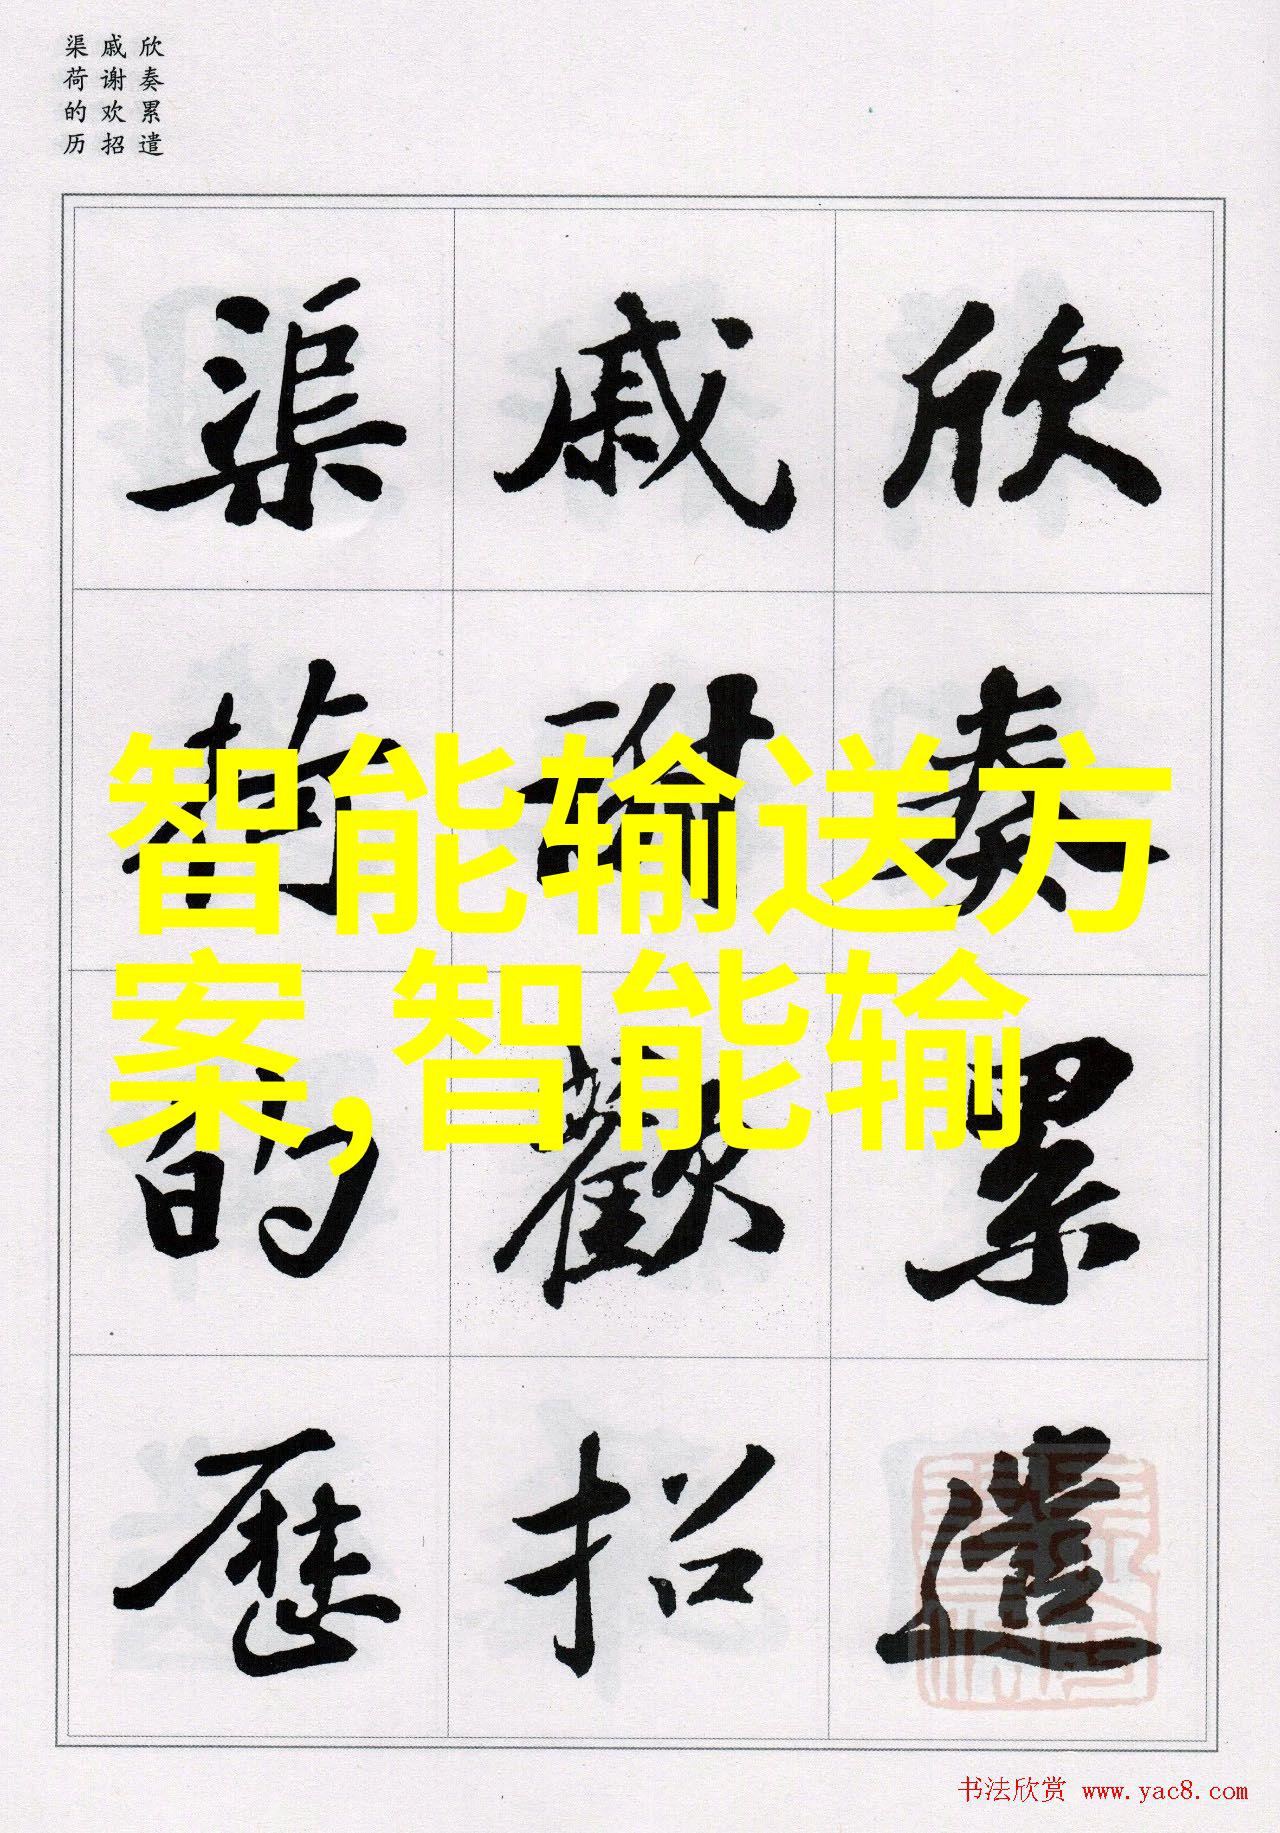 欣奏累遣
戚谢欢招
渠荷的历
欣奏累遣
戚謝歡招
渠荷的歷
智能输送方
案,智能输
书法欣赏 www.yac8.com